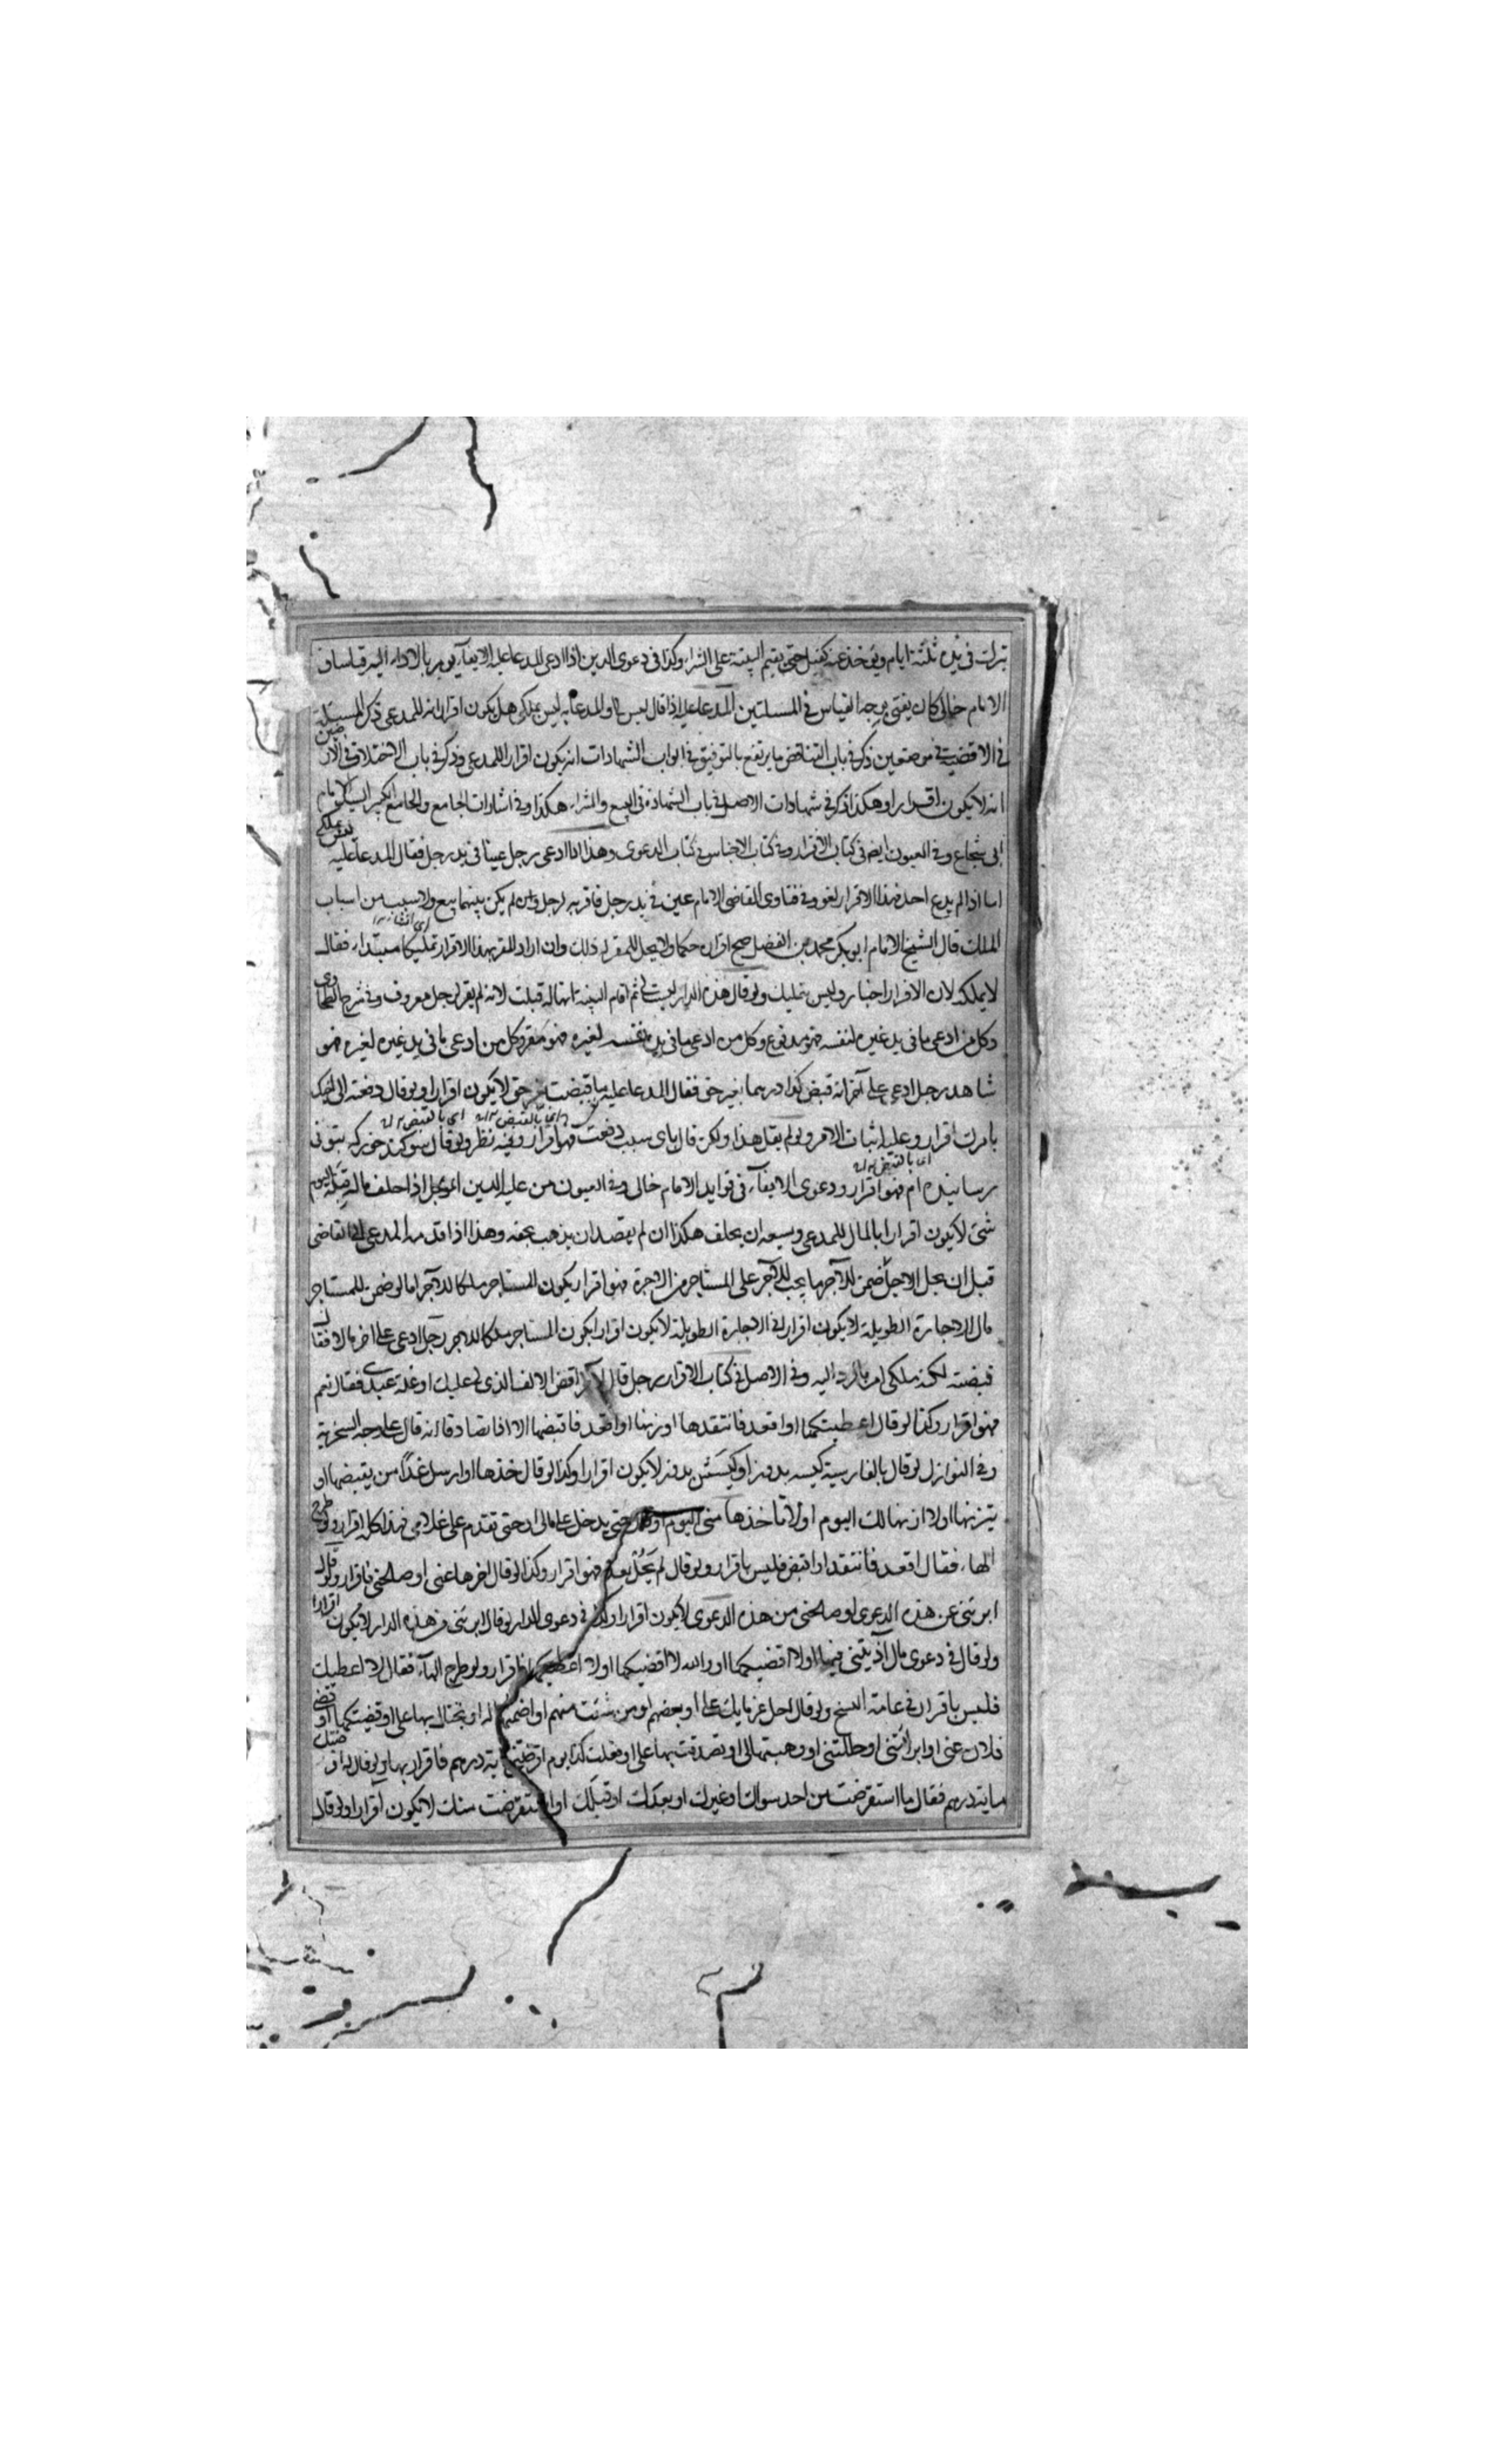 تترك في يده ثلثة ايام ويؤخذ عنه كفيل حتى يقيم البينة على الشراء وكذا في دعوى الدين اذا ادعى المدعا عليه الايفاء يومر بالاداء اليه قياسا
الامام خالى كان يفتى بوجه القياس في المسئلتين المدعا عليه اذا قال ليس لى او المدعا به ليس بملكى هل يكون اقرارا انه للمدعى ذكر المسئلة
في الاقضية في موضعين ذكر في باب التناقض ما يرتفع بالتوفيق في ابواب الشهادات انه يكون اقرارا للمدعى وذكر في باب الاختلاف في
انه لا يكون اقرارا وهكذا ذكر في شهادات الاصل في باب الشهادة في البيع والشراء هكذا وفي اشارات الجامع والجامع الكبير
ابى شجاع وفي العيون ايضا في كتاب الاقرار وفي كتاب الاجناس في كتاب الدعوى وهذا اذا ادعى رجل عينا في يد رجل فقال المدعا عليه ليس بملكى
اما اذا لم يدع احد فهذا الاقرار لغو وفي فتاوى القاضى الامام عين في يد رجل فاقر به لرجل وان لم يكن بينهما بيع ولا سبب من اسباب
الملك قال الشيخ الامام ابو بكر محمد بن الفضل صح اقراره حكما ولا يحل للمقر له ذلك وان اراد المقر بهذا الاقرار تمليكا مبتداء فقال
لا يملكه لان الاقرار اخبار وليس بتمليك ولو قال هذه الدار ليست لى ثم اقام البينة انها له قبلت لانه لم يقر لرجل معروف وفي شرح الطحاوى
وكل من ادعى ما في يد غيره لنفسه فهو مدع وكل من ادعى ما في يد نفسه لغيره فهو مقر وكل من ادعى ما في يد غيره لغيره فهو
شاهد رجل ادعى على آخر انه قبض كذا درهما بغير حق فقال المدعا عليه ما قبضت بغير حق لا يكون اقرارا ولو قال دفعته الى اخيك
بامرك اقرار وعليه اثبات الامر ولو لم يقل هذا ولكن قال باى سبب دفعت فهو اقرار وفيه نظر ولو قال سوكند خور كه بتو نى
رسانيده ام فهو اقرار ودعوى الايفاء في فوايد الامام خالى وفي العيون من عليه الدين المؤجل اذا حلف ماله قبله اليوم
شئ لا يكون اقرارا بالمال للمدعى ويسعه ان يحلف هكذا ان لم يقصد ان يذهب بحقه وهذا اذا قدمه المدعى الى القاضى
قبل ان يحل الاجل ضمن للآجر ما يجب للآجر على المستاجر من الاجرة فهو اقرار يكون المستاجر ملكا للآجر اما لو ضمن للمستاجر
مال الاجارة الطويلة لا يكون اقرارا في الاجارة الطويلة لا يكون اقرارا بكون المستاجر ملكا للآجر رجل ادعى على اخر مالا فقال
قبضته لكنه ملكى امر بالرد اليه وفي الاصل في كتاب الاقرار رجل قال لآخر اقض الالف الذى لى عليك او غلة عبدى فقال نعم
فهو اقرار وكذا لو قال اعطيتكها او اقعد فانتقدها او زنها او اقعد فاقبضها الا اذا تصادقا انه قال على وجه السخرية
وفي النوازل لو قال بالفارسية كيسه بدوز او كيستش بدوز لا يكون اقرارا وكذا لو قال خذها او ارسل غدا من يقبضها او
يتزنها او لا ازنها لك اليوم او لا تاخذها منى اليوم او حتى يدخل على مالى او حتى تقدم على غلامى فهذا كله اقرار ولو طرح
الهاء فقال اقعد فانتقد او اقبض فليس باقرار ولو قال لم يحل بعد فهو اقرار وكذا لو قال اخرها عنى او صالحنى فاقرار ولو قال
ابرئنى عن هذه الدعوى او صالحنى من هذه الدعوى لا يكون اقرارا وكذا في دعوى الدار ولو قال ابرئنى من هذه الدار لا يكون اقرارا
ولو قال في دعوى مال آذيتنى فيها او لا اقضيكها او والله لا اقضيكها او لا اعطيكها فاقرار ولو طرح الهاء فقال لا اعطيك
فليس باقرار في عامة النسخ ولو قال احل غرمايك على او بعضهم او من شئت منهم او اضمنها له او يحتال بها على او قضيتكها او قضى
فلان عنى او ابرأتنى او حللتنى او وهبتها لى او تصدقت بها على او فعلت كذا يوم اقرضتنى ماية درهم فاقرار بها ولو قال له
ماية درهم فقال ما استقرضت من احد سواك او غيرك او بعدك او قبلك او استقرضت منك لا يكون اقرارا ولو قال